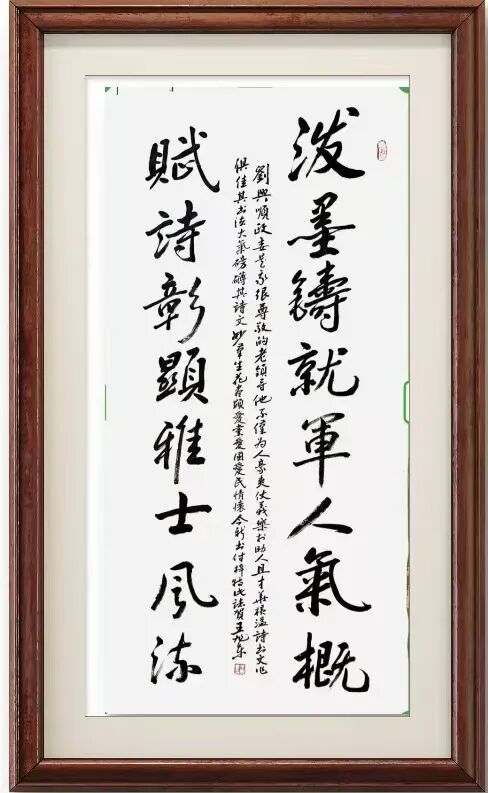 潑墨鑄就軍人氣概
劉興順政委是我很尊敬的老領導他不僅為人豪爽仗義樂於助人且才華橫溢詩書文化
俱佳其書法大氣磅礴其詩文妙筆生花首頌愛黨愛國愛民情懷今新書付梓特此誌賀王旭東
賦詩彰顯雅士風流